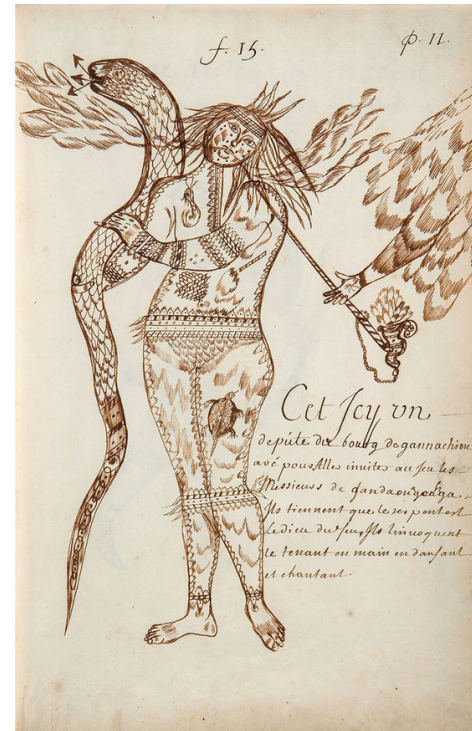 f. 15.
p. 11.
Cet Jcy un
depúte du bourg de gannachiou
avé pour aller invite au Jeu les
Messieurs de gandaouagoahga.
Jls tiennent que le serpent est
Le dieu du feu, Jls linvoquent
le tenant en main en dansant
et chantant.